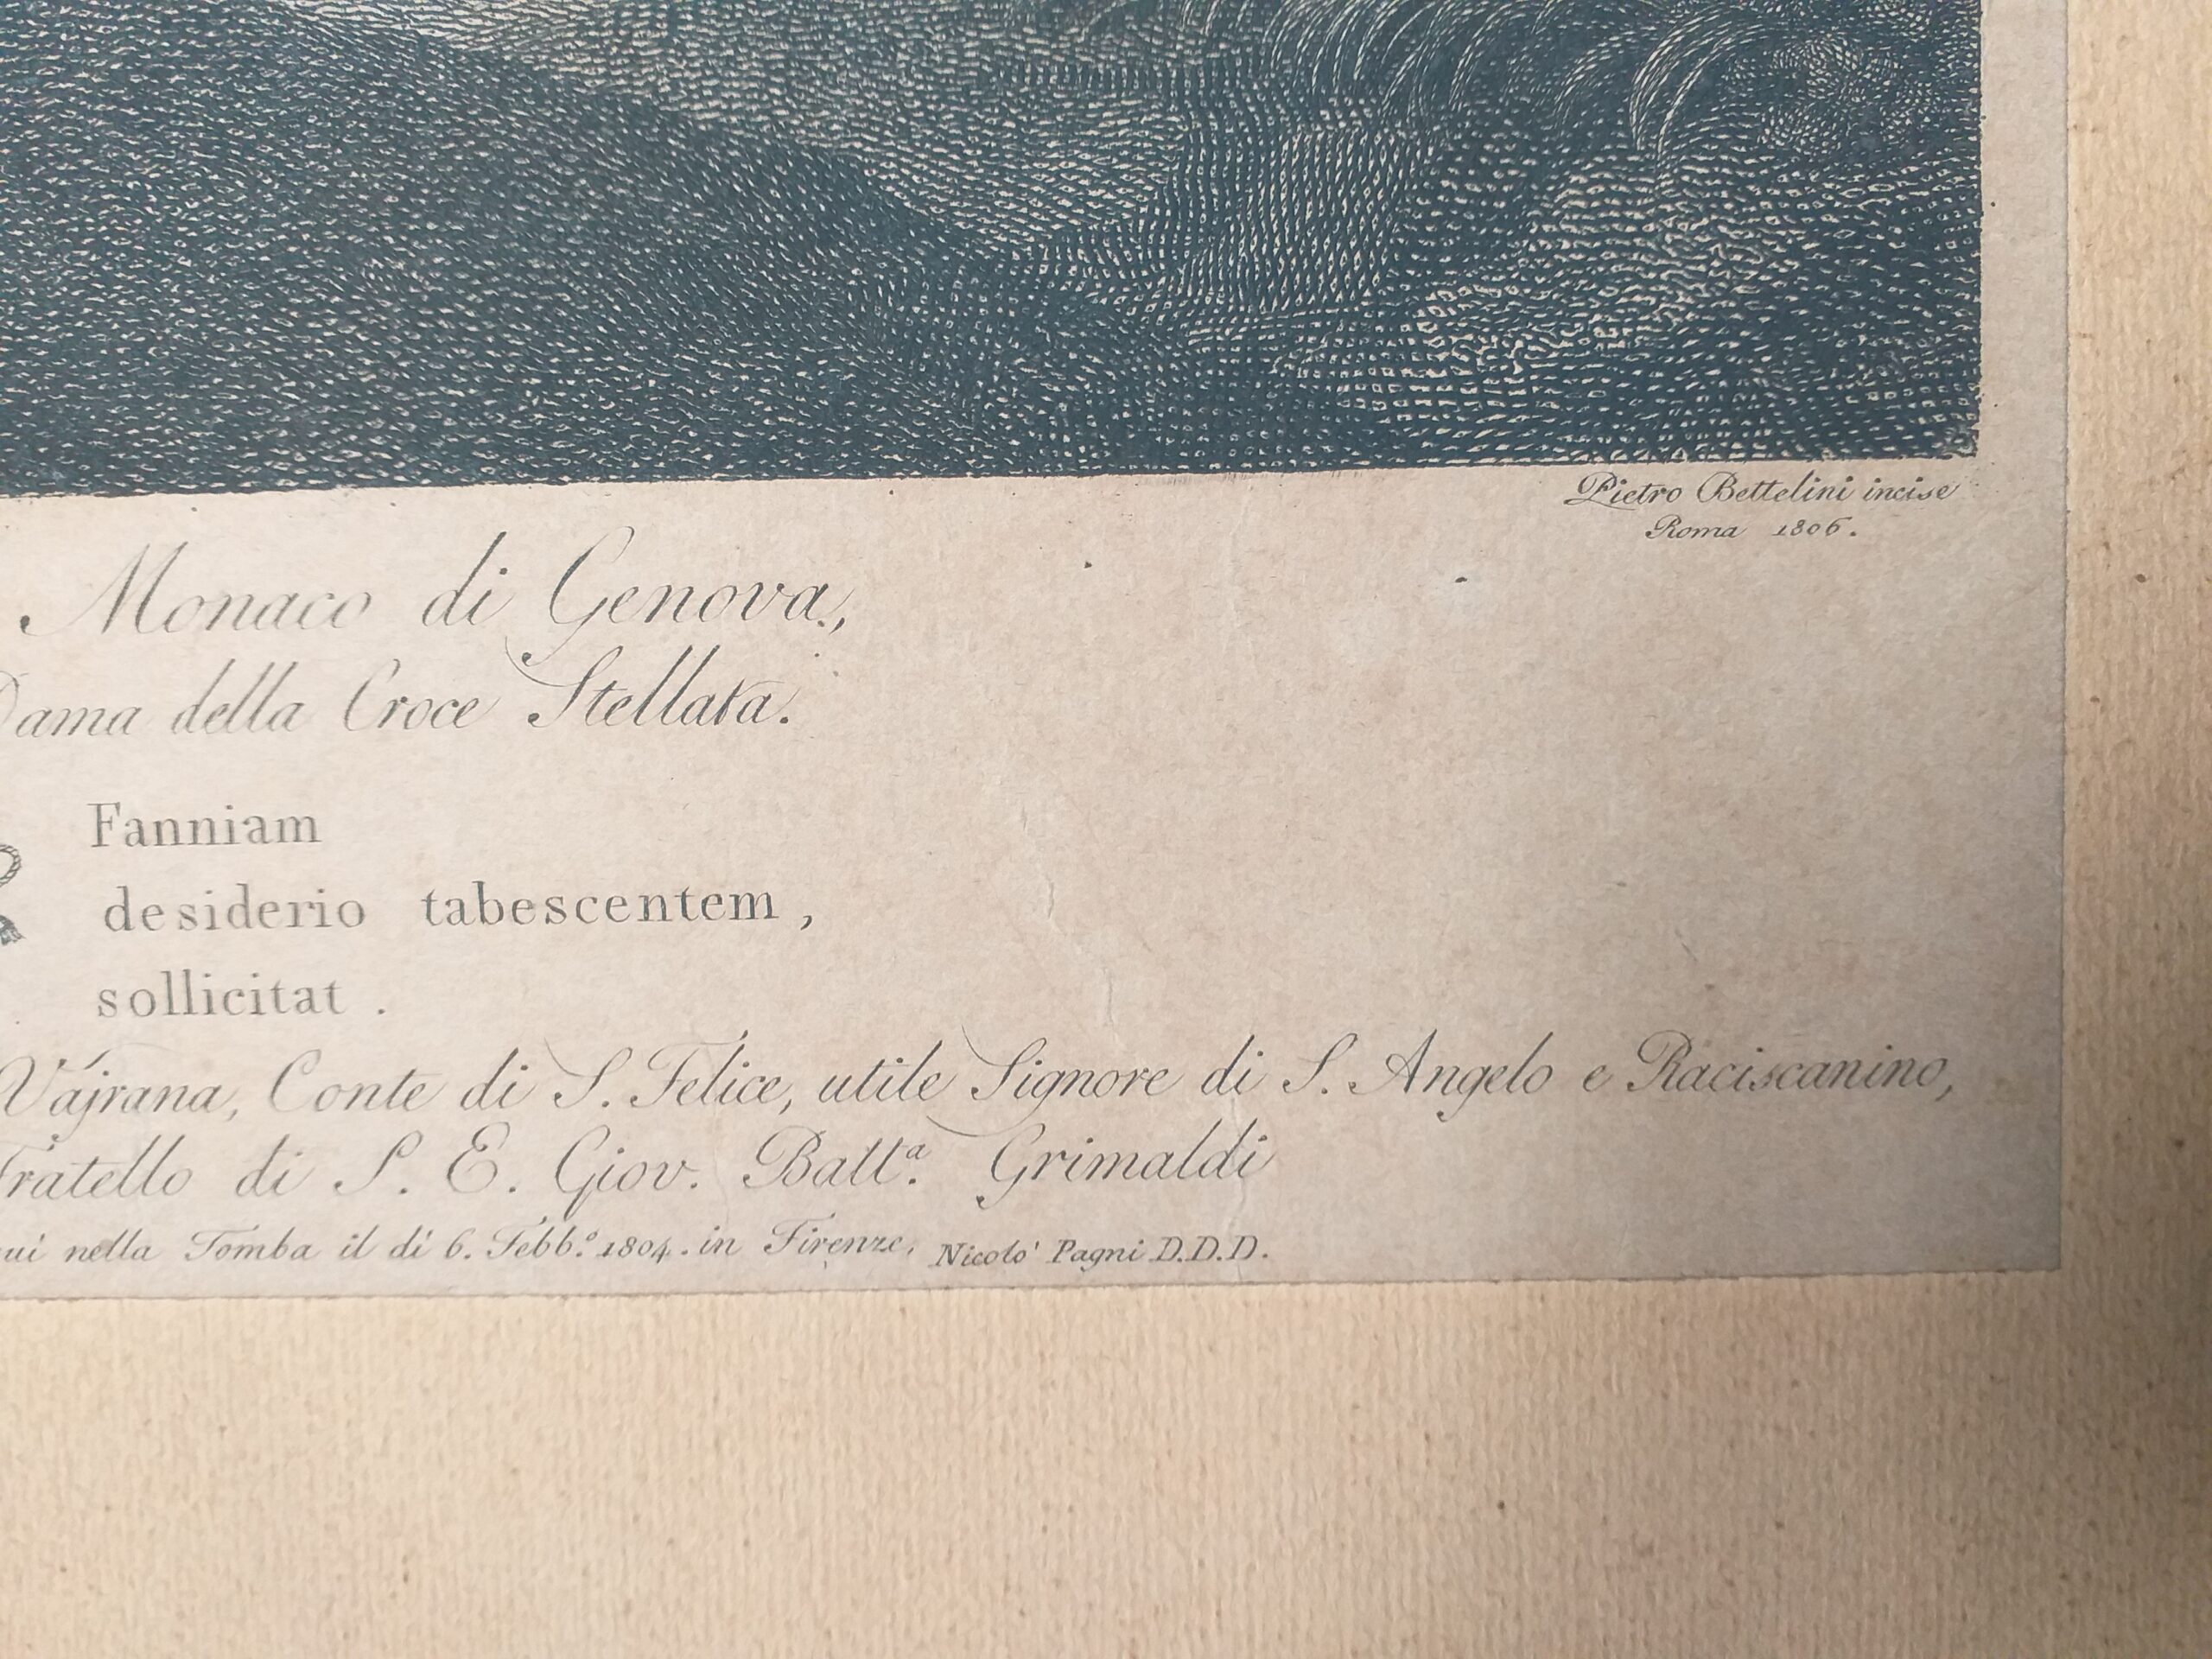 Pietro Bettelini incise
Roma 1806.
Monaco di Genova,
Dama della Croce Stellata.
Fanniam
desiderio tabescentem,
sollicitat.
Vajrana, Conte di S. Felice, utile Signore di S. Angelo e Raciscanino,
Fratello di S. E. Giov. Batt.ª Grimaldi
nella Tomba il di 6. Febb.º 1804. in Firenze. Nicolo' Pagni D.D.D.